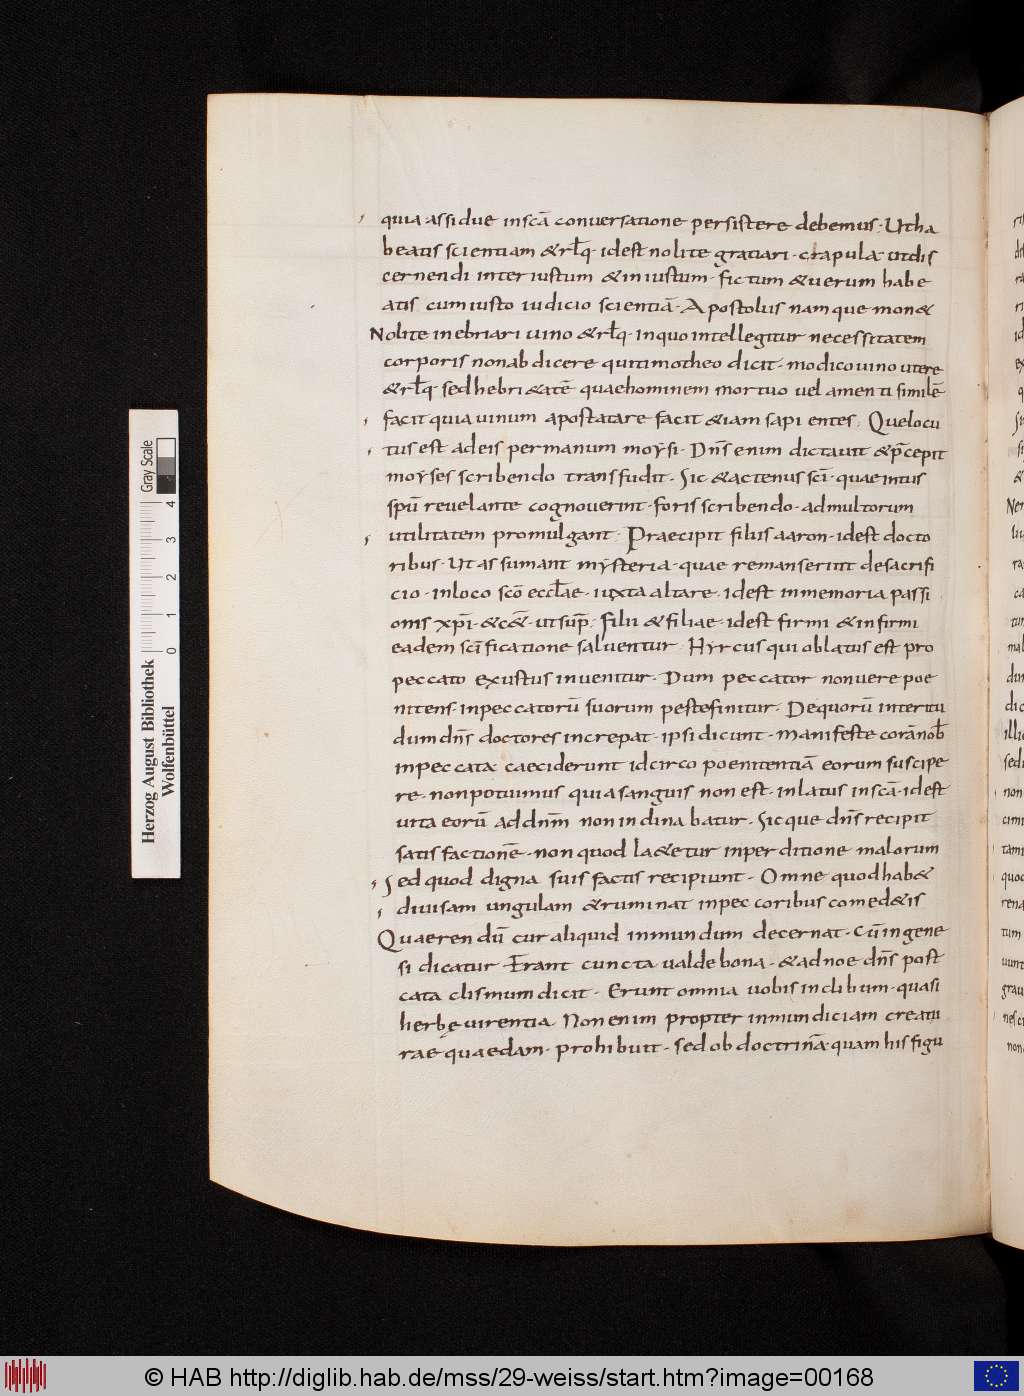 quia assidue in scā conuersatione persistere debemus. Ut ha
beatis scientiam & rłq. id est nolite gratiari. crapula. ut dis
cernendi inter iustum & iniustum. fictum & uerum habe
atis cum iusto iudicio scientiā. Apostolus namque mon&
Nolite inebriari uino & rłq. in quo intellegitur necessitatem
corporis non abdicere qui timotheo dicit. modico uino utere
& rłq sed hebri&atē quae hominem mortuo uel amenti similē
facit quia uinum apostatare facit &iam sapientes. Que locu
tus est ad eis per manum moysi. Dn̄s enim dictauit & p̄cepit
moyses scribendo transfudit. Sic & actenus sc̄i. quae intus
spū reuelante cognouerint. foris scribendo. ad multorum
utilitatem promulgant. Praecipit filiis aaron. id est docto
ribus. Ut assumant mysteria. quae remanserint de sacrifi
cio. in loco sc̄o eccłae. iuxta altare. id est in memoria passi
onis xp̄i. & c&̄. ut sup̄. Filii & filiae. id est firmi & infirmi
eadem sc̄ificatione saluentur. Hyrcus qui oblatus est pro
peccato exustus inuenitur. Dum peccator non uere poe
nitens in peccatorū suorum peste finitur. De quorū interitu
dum dn̄s doctores increpat. ipsi dicunt. manifeste corā nob̄
in peccata caeciderunt idcirco poenitentiā eorum suscipe
re. non potuimus quia sanguis non est. inlatus in scā. id est
uita eorū ad dn̄m non indinabatur. Sicque dn̄s recipit
satisfactionē. non quod la&etur in perditione malorum
Sed quod digna suis factis recipiunt. Omne quod hab&
diuisam ungulam & ruminat in peccoribus comed&is
Quaerendū cur aliquid inmundum decernat. cū in gene
si dicatur. Erant cuncta ualde bona. & ad noe dn̄s post
cataclismum dicit. Erunt omnia uobis in clibum. quasi
herbę uirentia. Non enim propter inmundiciam creatu
rae quaedam. prohibuit. sed ob doctrinā. quam his figu
Herzog August Bibliothek
Wolfenbüttel
Gray Scale
0 1 2 3 4
© HAB http://diglib.hab.de/mss/29-weiss/start.htm?image=00168